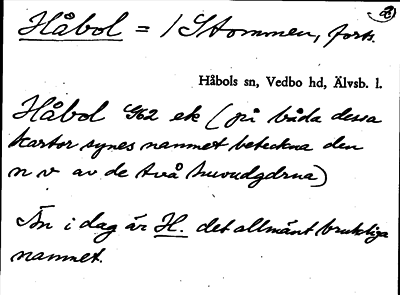 Håbol = / Stommen, forts.
Håbols sn, Vedbo hd, Älvsb. l.
Håbol ek (på båda dessa
kartor synes namnet beteckna den
n v av de två huvudgdrna)
Än i dag är H. det allmänt brukliga
namnet.